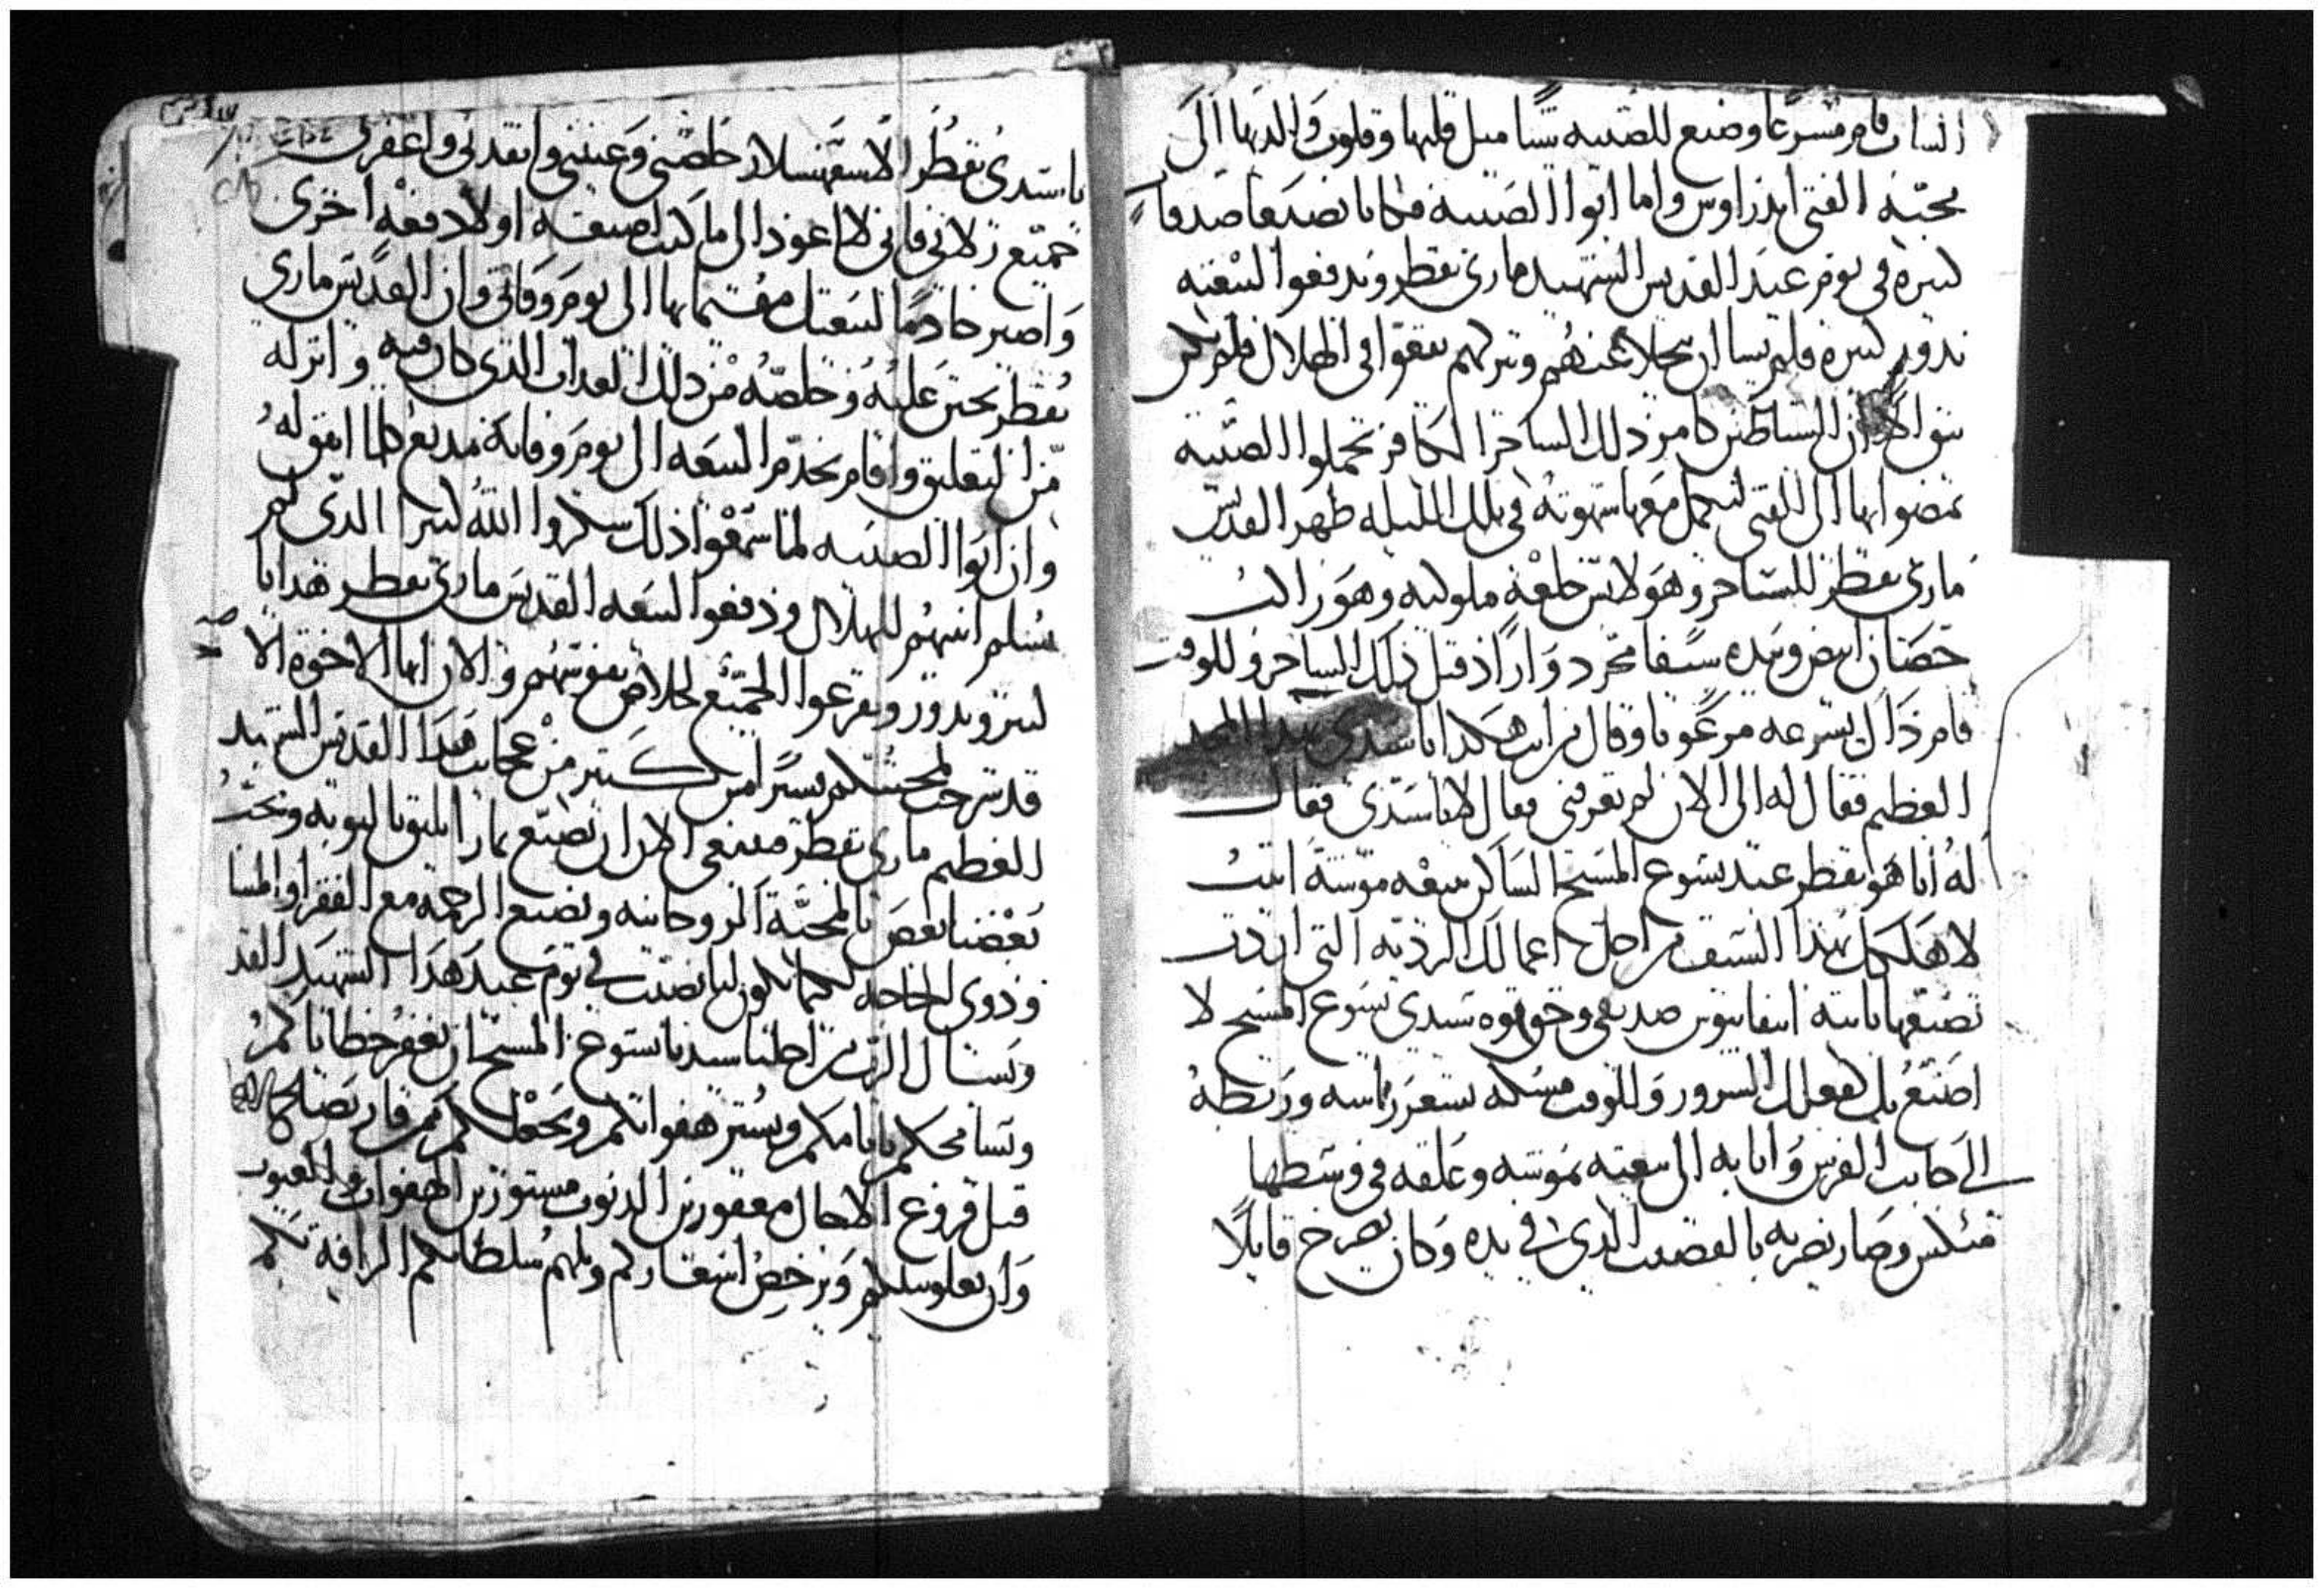 الساب قام مسرعا وصنع للصبيه شيئا ميل قلبها وقلوب والديها الى
محبة الفتى اندراوس واما ابوا الصبيه فكانا يصنعا صدقات
كتيره في يوم عيد القديس الشهيد ماري بقطر ويدفعوا للبيعه
ندور كتيره فلم يشا ان يتخلا عنهم ويتركهم يقعوا في الهلاك فلم تكن
الشياطين دلك الساحر الكافر تحملوا الصبيه
يمضوا بها الى الفتى ليكمل معها شهوته في تلك الليله ظهر القديس
ماري بقطر للساحر وهو لابس خلعة ملوكيه وهو راكب
حصان ابيض وبيده سيفا مجرد واراد قتل ذلك الساحر وللوقت
قام ذاك بسرعه مرعوبا وقال من انت هكدا يا سيدي بهدا المجد
العظيم فقال له الى الان لم تعرفني فقال لا يا سيدي فقال
له أنا هو بقطر عبد يسوع المسيح الساكن بيعة موشة اتيت
لاهلكك بهدا السيف من اجل اعمالك الرديه التي اردت
تصنعها بابنة صديقي وحق قوه سيدي يسوع المسيح لا
اصنع بك فعلك السرور وللوقت مسكه بشعر راسه وربطه
الى جانب الفرس واتا به الى بيعته بموشه وعلقه في وسطها
منكس وصار يضربه بالقضيب الدي في يده وكان يصرخ قايلا
يا سيدي بقطر الاسفهسلار خلصني وعينني وانقدني واغفر لي
جميع زلاتي فاني لا اعود الى ما كنت اصنعه اولا دفعه اخرى
واصير خادما لبيعتك مقيما بها الى يوم وفاتي وان القديس ماري
بقطر تحنن عليه وخلصه من دلك العداب الدي كان فيه وانزله
من التعليق واقام يخدم البيعه الى يوم وفاته
وان ابوا الصبيه لما سمعوا ذلك شكروا الله كتيرا الدي لم
يسلم ابنتهم للهلاك ودفعوا لبيعه القديس ماري بقطر هدايا
كتير وندور وتفرغوا الجميع لخلاص نفوسهم والان ايها الاخوة الا
قد شرحت لمحبتكم يسيرا من كتير من عجايب هدا القديس الشهيد
العظيم ماري بقطر فينبغي لنا ان نصنع تمارا تليق بالتوبه ونحب
بعضنا بعض بالمحبة الروحانيه ونصنع الرحمة مع الفقرا والمسا
وذوي الحاجه لكيما يكون لنا نصيب في يوم عيد هدا الشهيد القد
ويسال الرب من اجلنا سيدنا يسوع المسيح ان يغفر خطاياكم
ويسامحكم باتامكم ويستر هفواتكم ويجعلكم
قبل فروغ الاجال مغفورين الدنوب مستورين الهفوات والعيوب
وان يعلو ويرخص اسعاركم ويلهم سلطانكم الرافة بكم